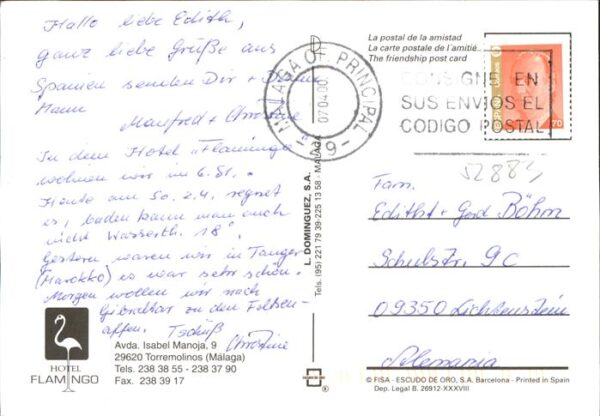 Hallo liebe Edith,
ganz liebe Grüße aus
Spanien senden Dir + Deinem
Mann
Manfred + Christine
In dem Hotel "Flamingo"
wohnen wir im 6. St.
Heute am So. 2.4. regnet
es, baden kann man auch
nicht Wasserth. 18°.
Gestern waren wir in Tanger
(Marokko) es war sehr schön.
Morgen wollen wir nach
Gibraltar zu den Felsen-
affen. Tschüß
Christine
HOTEL
FLAMINGO
Avda. Isabel Manoja, 9
29620 Torremolinos (Málaga)
Tels. 238 38 55 - 238 37 90
Fax. 238 39 17
L. DOMINGUEZ, S.A.
Tels. (95) 221 79 39-225 13 58 - MALAGA
La postal de la amistad
La carte postale de l'amitié
The friendship post card
MALAGA OF PRINCIPAL
07 04 00
- 29 -
CONSIGNE EN
SUS ENVIOS EL
CODIGO POSTAL
70
Fam.
Edith + Gerd Böhm
Schulstr. 9c
09350 Lichtenstein
Alemania
© FISA - ESCUDO DE ORO, S.A. Barcelona - Printed in Spain
Dep. Legal B. 26912-XXXVIII